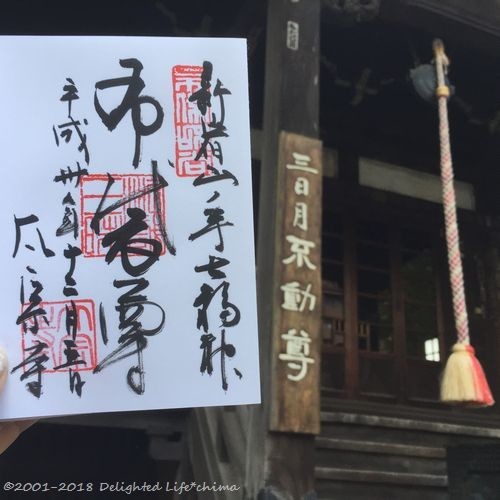 新宿山ノ手七福神
布袋尊
平成卅年十二月三日
太宗寺
三日月不動尊
©2001-2018 Delighted Life*chima